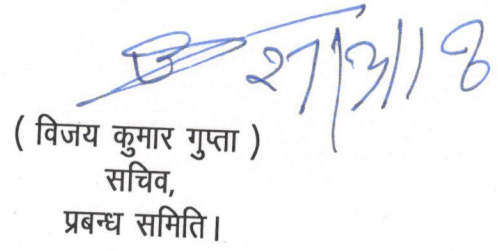 ( विजय कुमार गुप्ता )
सचिव,
प्रबन्ध समिति।